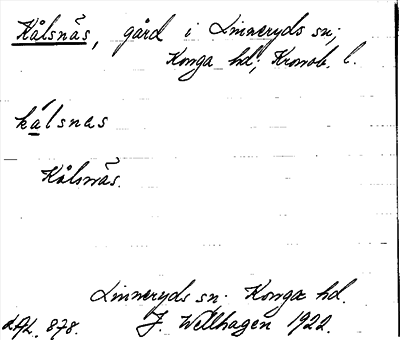 Kålsnäs, gård i Linneryds sn;
Konga hd; Kronob. l.
kálsnas
Kålsnäs.
Linneryds sn. Konga hd.
LAL. 878. J. Wellhagen 1922.